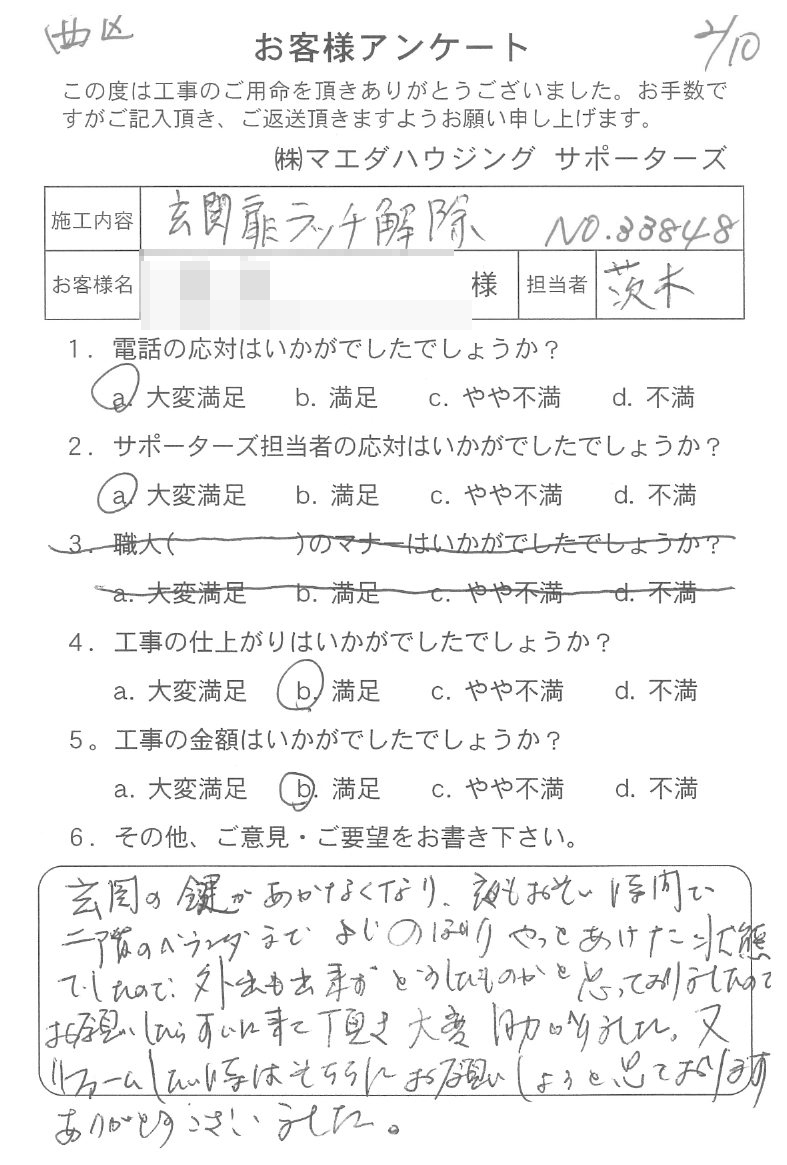 西区
2/10
お客様アンケート
この度は工事のご用命を頂きありがとうございました。お手数で
すがご記入頂き、ご返送頂きますようお願い申し上げます。
㈱マエダハウジング サポーターズ
施工内容 玄関扉ラッチ解除 NO.33848
お客様名 様 担当者 茨木
1. 電話の応対はいかがでしたでしょうか?
a. 大変満足 b. 満足 c. やや不満 d. 不満
2. サポーターズ担当者の応対はいかがでしたでしょうか?
a. 大変満足 b. 満足 c. やや不満 d. 不満
3. 職人( )のマナーはいかがでしたでしょうか?
a. 大変満足 b. 満足 c. やや不満 d. 不満
4. 工事の仕上がりはいかがでしたでしょうか?
a. 大変満足 b. 満足 c. やや不満 d. 不満
5。工事の金額はいかがでしたでしょうか?
a. 大変満足 b. 満足 c. やや不満 d. 不満
6. その他、ご意見・ご要望をお書き下さい。
玄関の鍵があかなくなり、夜もおそい時間で
二階のベランダまでよじのぼりやっとあけた状態
でしたので、外出も出来ずどうしたものかと思っておりましたので
お願いしたらすぐに来て頂き大変助かりました。又
リフォームしたい時はそちらにお願いしようと思っております
ありがとうございました。